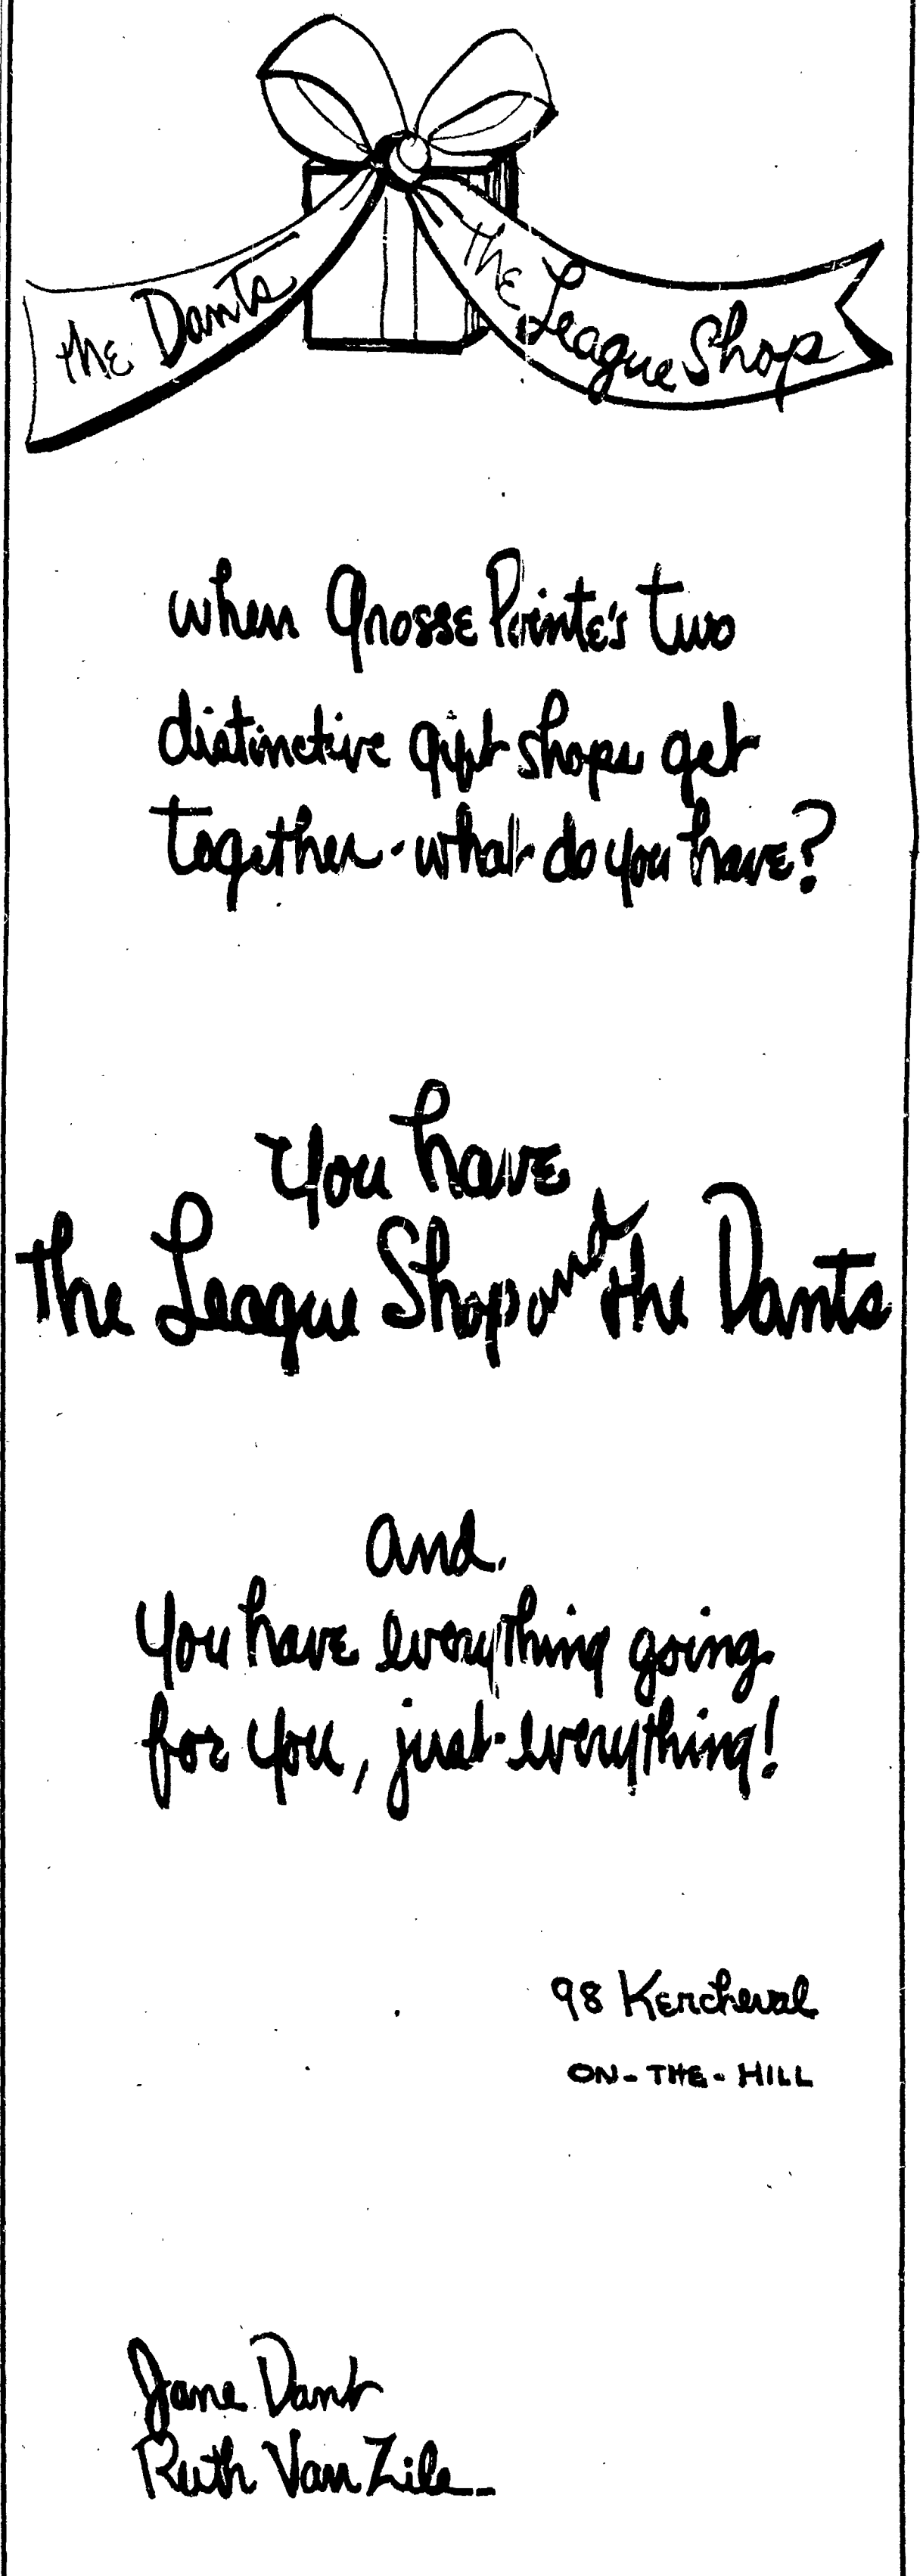 the Dants
the League Shop
when Grosse Pointe's two
distinctive gift shops get
together - what do you have?
You have
the League Shop and the Dants
and.
You have everything going
for you, just everything!
98 Kercheval
ON-THE-HILL
Jane Dant
Ruth Van Zile